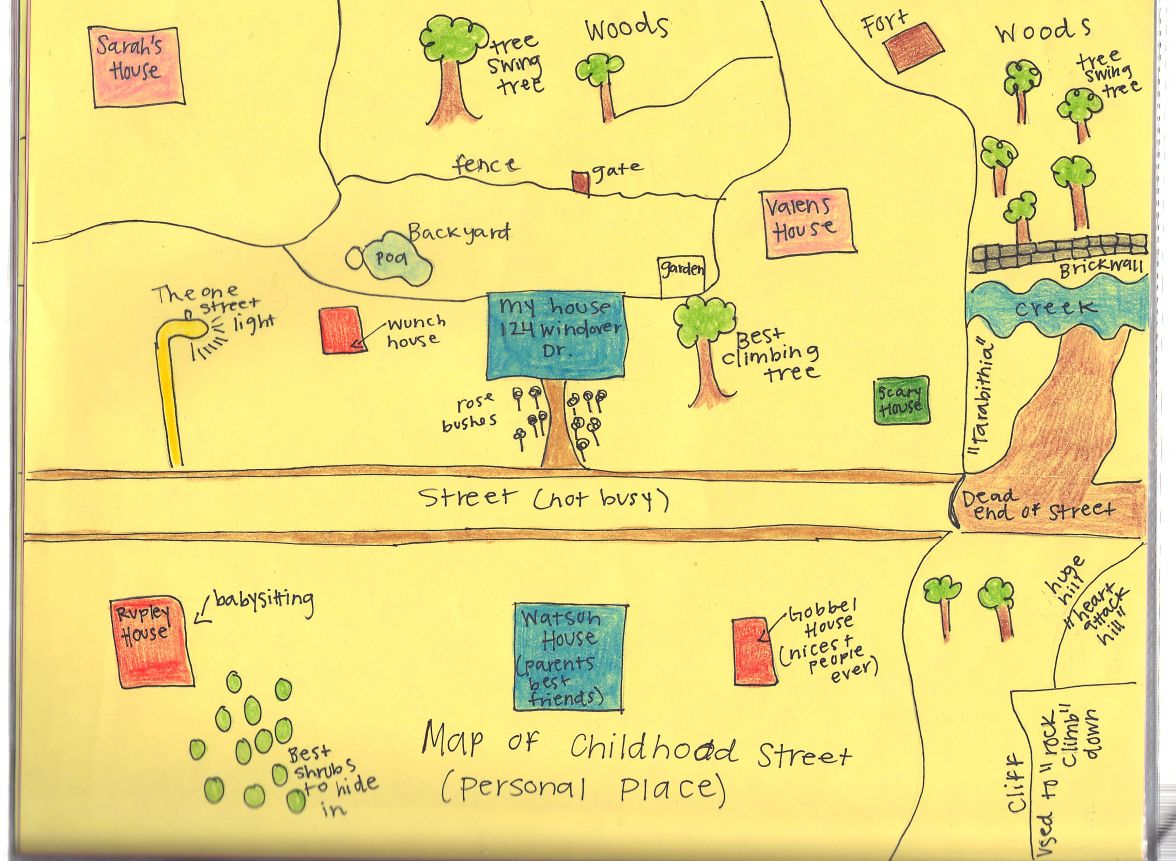 Sarah's
House
tree
swing
tree
Woods
Fort
Woods
tree
swing
tree
fence
gate
Valens
House
Backyard
pool
garden
Brickwall
Creek
The one
street
light
Wunch
house
My house
124 Windover
Dr.
Best
climbing
tree
rose
bushes
Scary
House
"Tarabithia"
Street (not busy)
Dead
end of street
Rupley
House
babysitting
Watson
House
(parents
best
friends)
Gobbel
House
(nicest
people
ever)
huge
hill
"heart
attack
hill"
Best
shrubs
to hide
in
Map of Childhood Street
(Personal Place)
Cliff
Used to "rock
climb"
down